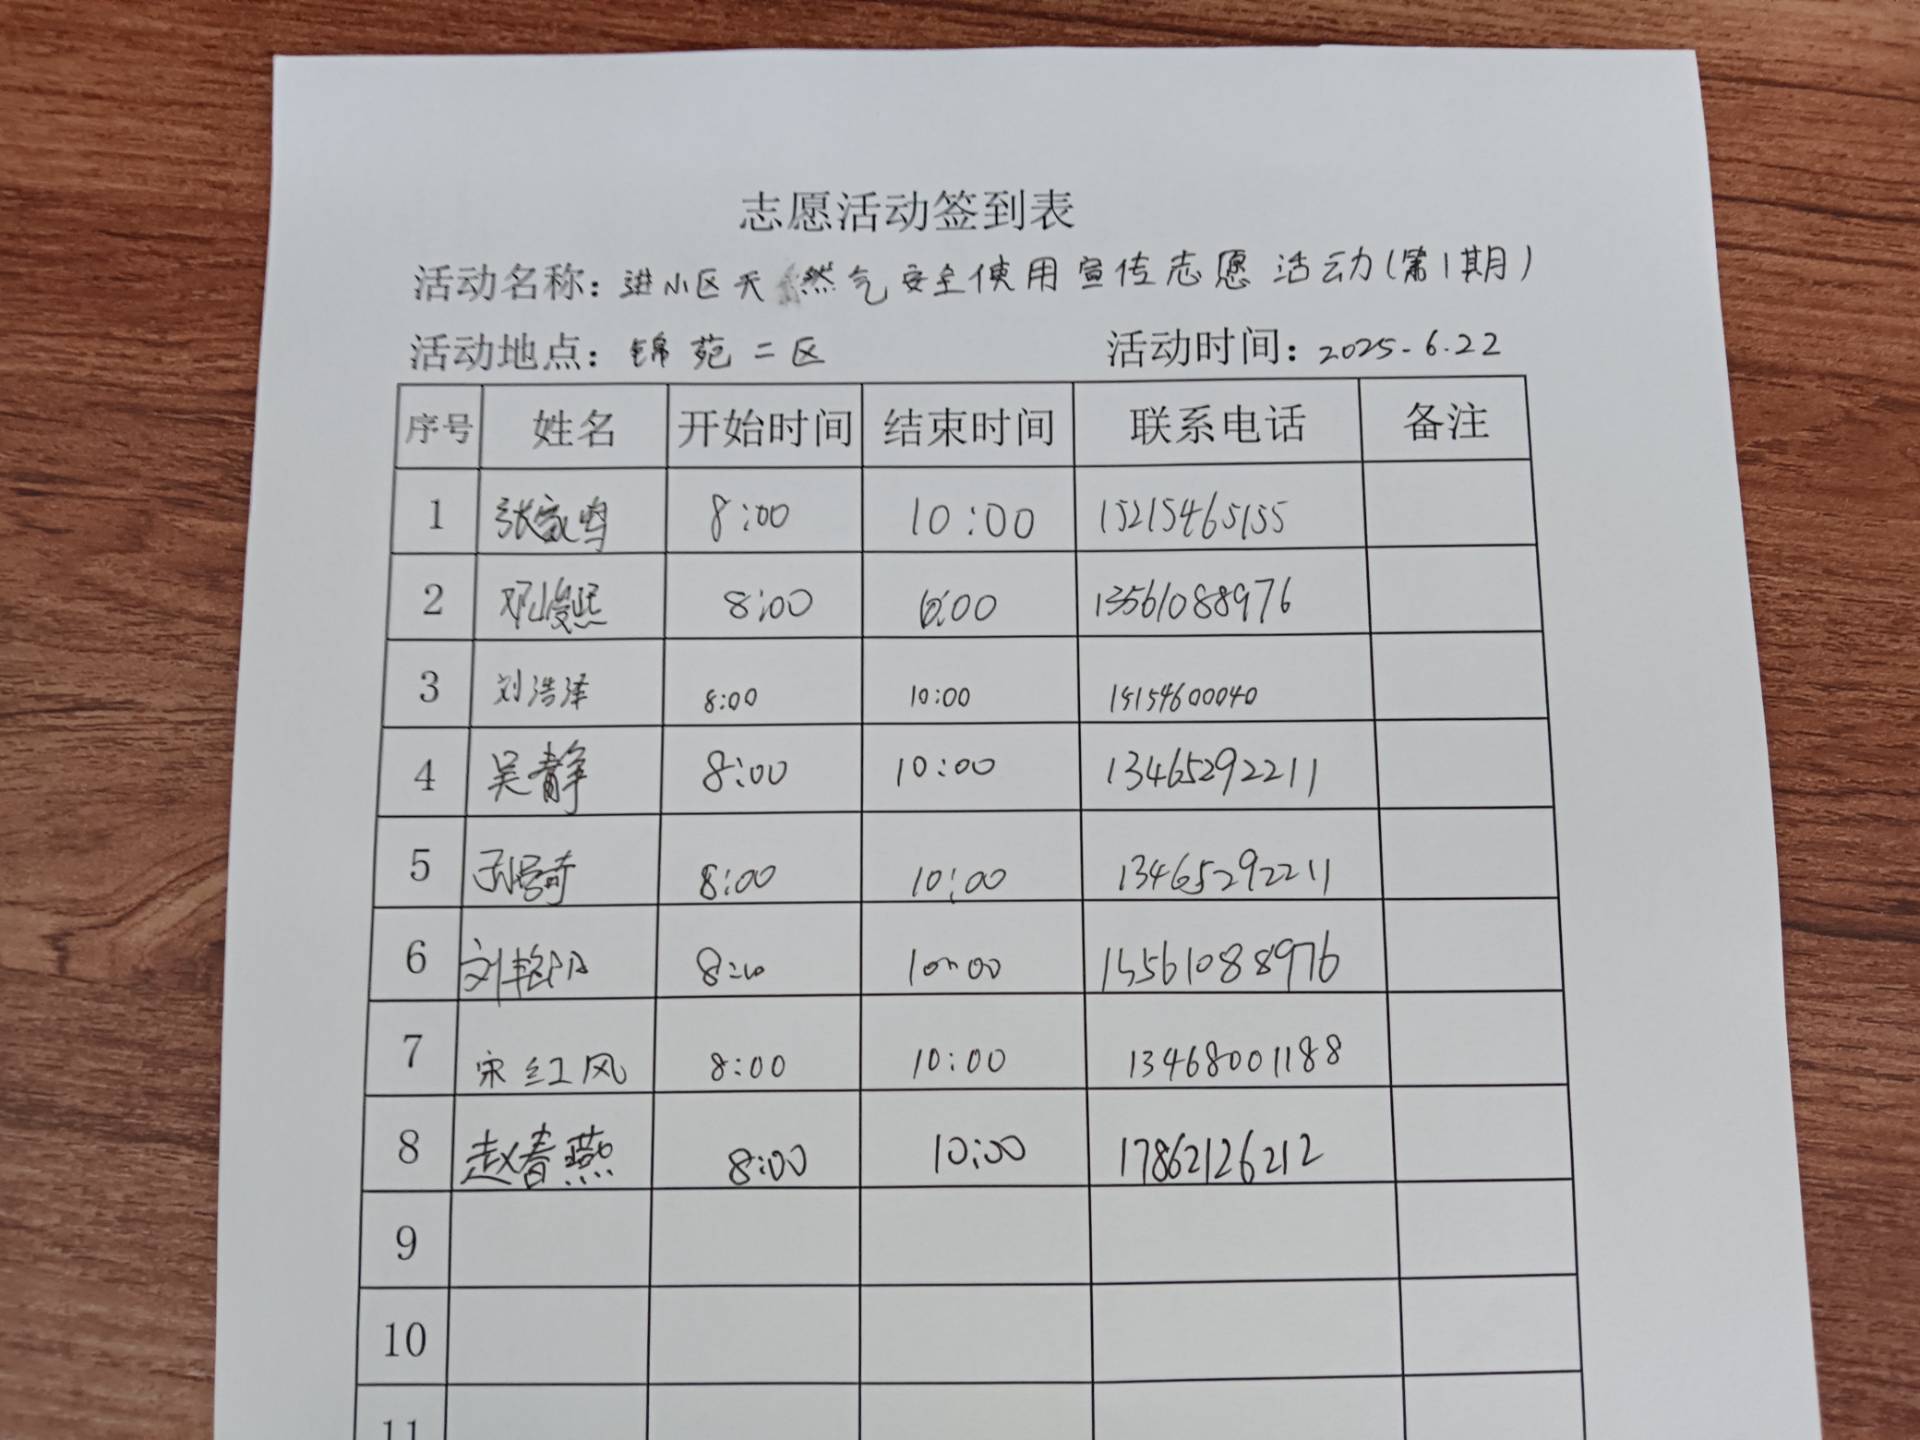 志愿活动签到表
活动名称：进小区天然气安全使用宣传志愿活动(第1期)
活动地点：锦苑二区 活动时间：2025.6.22
序号 姓名 开始时间 结束时间 联系电话 备注
1 张家鸣 8:00 10:00 15215465155
2 邓峻熙 8:00 10:00 13561088976
3 刘浩泽 8:00 10:00 15154600040
4 吴静 8:00 10:00 13465292211
5 8:00 10:00 13465292211
6 刘艳阳 8:00 10:00 13561088976
7 宋红风 8:00 10:00 13468001188
8 赵春燕 8:00 10:00 17862126212
9
10
11